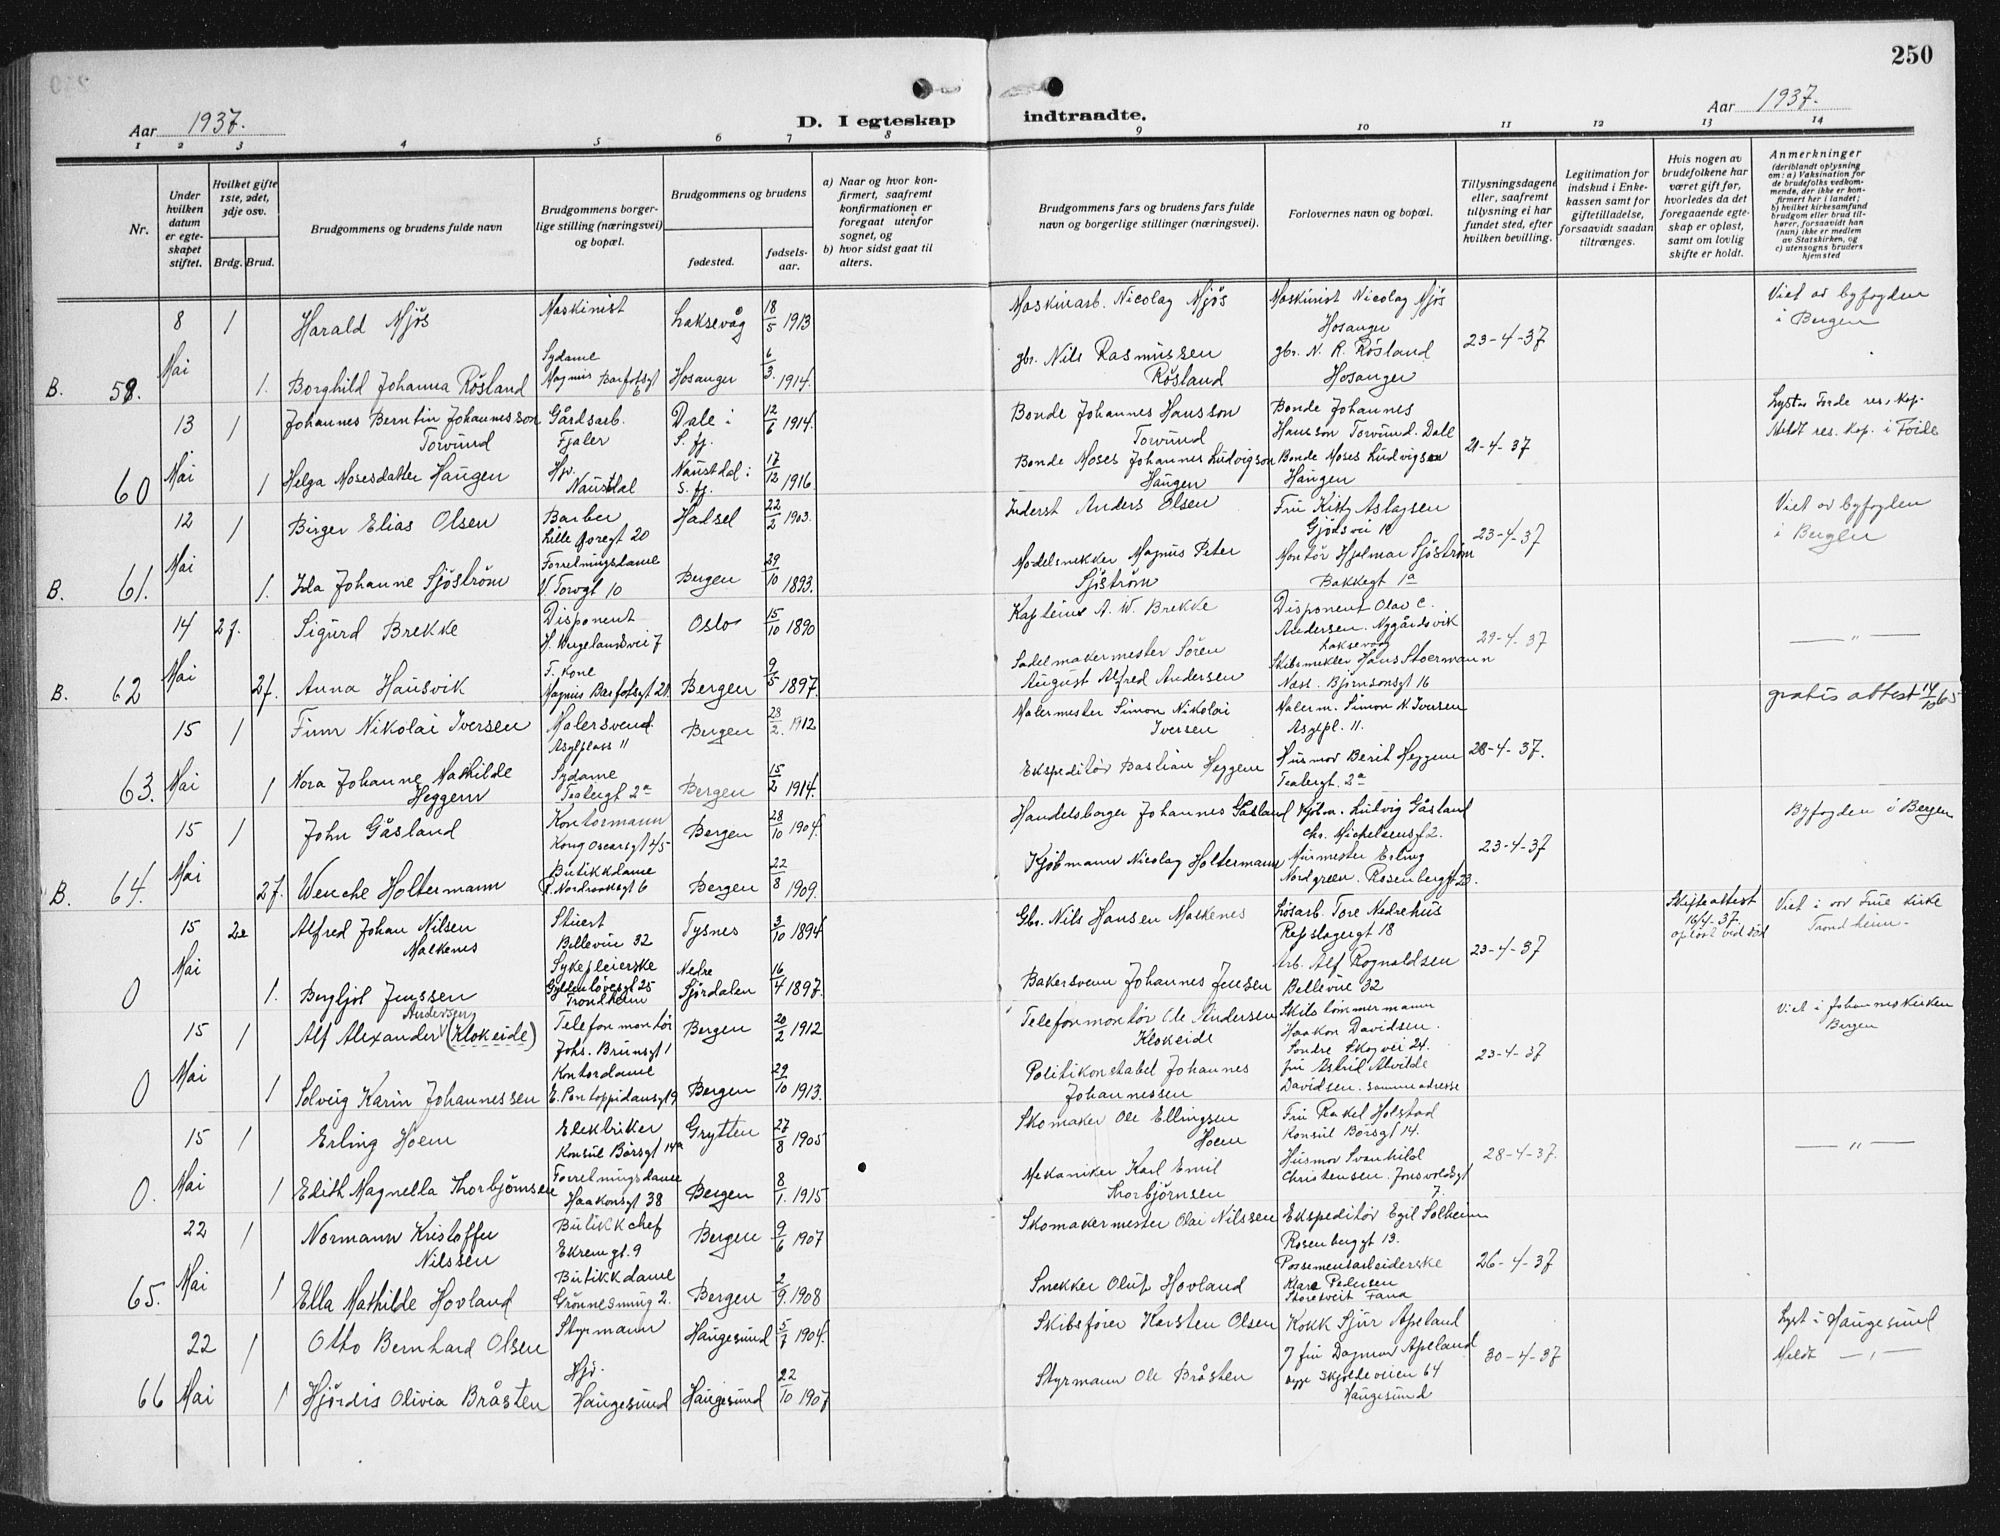 250
Aar 1937.
D. I egteskap indtraadte.
Aar 1937.
1 2 3 4 5 6 7 8 9 10 11 12 13 14
Nr.
Under hvilken datum er egteskapet stiftet.
Hvilket gifte 1ste, 2det, 3dje osv.
Brdg. Brud.
Brudgommens og brudens fulde navn
Brudgommens borgerlige stilling (næringsvei) og bopæl.
Brudgommens og brudens
fødested.
fødselsaar.
a) Naar og hvor konfirmert, saafremt konfirmationen er foregaat utenfor sognet, og
b) hvor sidst gaat til alters.
Brudgommens fars og brudens fars fulde navn og borgerlige stillinger (næringsvei).
Forlovernes navn og bopæl.
Tillysningsdagene eller, saafremt tillysning ei har fundet sted, efter hvilken bevilling.
Legitimation for indskud i Enkekassen samt for giftetilladelse, forsaavidt saadan tiltrænges.
Hvis nogen av brudefolkene har været gift før, hvorledes da det foregaaende egteskap er opløst, samt om lovlig skifte er holdt.
Anmerkninger
(deriblandt oplysning om: a) Vaksination for de brudefolks vedkommende, der ikke er konfirmert her i landet; b) hvilket kirkesamfund brudgom eller brud tilhører, forsaavidt han (hun) ikke er medlem av Statskirken, og c) utensogns bruders hjemsted
8 1 Harald Mjøs Maskinist Laksevåg 18/5 1913 Maskinarb. Nicolay Mjøs Maskinist Nicolay Mjøs Hosanger 23-4-37 Viet av byfogden i Bergen
B. 59. Mai 1. Borghild Johanna Røsland Sydame Magnus Barfotsgt 6 Hosanger 6/3 1914. gbr. Nils Rasmussen Røsland gbr. N. R. Røsland Hosanger
13 1 Johannes Berntin Johannesson Torvund Gårdsarb. Fjaler Dale i S. fj. 12/6 1914. Bonde Johannes Hansson Torvund Bonde Johannes Hansson Torvund. Dale 21-4-37 Lyst av Førde res. kap. Meldt res. kap. i Førde
60 Mai 1 Helga Mosesdatter Haugen Hjv. Naustdal Naustdal i S. fj. 17/12 1916. Bonde Moses Johannes Ludvigson Haugen Bonde Moses Ludvigson Haugen
12 1 Birger Elias Olsen Barber Lille Øregt 20 Hadsel 22/2 1903. Inderst Anders Olsen Fru Kitty Aslagsen Gjødsvei 12 23-4-37 Viet av byfogden i Bergen
B. 61. Mai 1. Ida Johanne Sjøstrøm Forretningsdame V. Torvgt 10 Bergen 29/10 1893. Modelsnekker Magnus Peter Sjøstrøm Montør Hjalmar Sjøstrøm Bakkegt 1a
14 2 f. Sigurd Brekke Disponent H. Wergelandsvei 7 Oslo 15/10 1890 Kaptein A. W. Brekke Disponent Olav C. Andersen. Nygårdsvik Laksevåg 29-4-37 — " —
B. 62 Mai 2 f. Anna Hausvik F. kone Magnus Barfotsgt 21. Bergen 9/5 1897. Sadelmakermester Søren August Alfred Andersen Skibsmekler Hans Stoermann Næss. Bjørnsonsgt 16 gratis attest 14/10 65
15 1 Finn Nikolai Iversen Malersvend Asylplass 11 Bergen 28/2. 1912 Malermester Simon Nikolai Iversen Malerm. Simon N. Iversen Asylpl. 11. 28-4-37.
63. Mai 1 Nora Johanne Mathilde Heggem Sydame Teatergt. 2a Bergen 15/2 1914. Ekspeditør Bastian Heggem Husmor Berit Heggem Teatergt. 2a
15 1 John Gåsland Kontormann Kong Oscarsgt 45 Bergen 28/10 1904. Handelsborger Johannes Gåsland Kjøbm. Ludvig Gåsland Chr. Michelsensgt 2. 23-4-37 Byfogden i Bergen
B. 64. Mai 2 f. Wenche Holtermann Butikkdame R. Nordraaksgt 6 Bergen 22/8 1909. Kjøbmann Nicolay Holtermann Murmester Erling Nordgreen. Rosenberggt 23.
15 2e Alfred Johan Nilsen Malkenes Stuert Bellevue 32 Tysnes 3/10 1894 Gbr. Nils Hansen Malkenes Løsarb. Tore Nedrehus Repslagergt 18 23-4-37 Skifteattest 16/4-37. opløst ved død Viet i Vor Frue kirke Trondheim.
0 Mai 1. Bergljot Jenssen Sykepleierske Gyldenløvesgt 25 Trondheim Nedre Stjørdalen 16/4 1897. Bakersvenn Johannes Jenssen Arb. Alf Rognaldsen Bellevue 32
15 1 Alf Alexander Andersen (Klokeide) Telefonmontør Johs. Brunsgt 1 Bergen 20/2 1912 Telefonmontør Ole Andersen Klokeide Skibstømmermann Haakon Davidsen. Søndre Skogvei 24. 23-4-37 Viet i Johanneskirken Bergen
0 Mai 1 Solveig Karin Johannessen Kontordame E. Pontoppidansgt 9 Bergen 29/10 1913. Politikonstabel Johannes Johannessen Fru Astrid Alvilde Davidsen. samme adresse
15 1 Erling Hoem Elektriker Konsul Børsgt 14a Grytten 27/8 1905 Skomaker Ole Ellingsen Hoem Fru Rakel Holstad Konsul Børsgt 14. 28-4-37. — " —
0. Mai 1 Edith Magnella Thorbjørnsen Forretningsdame Haakonsgt 38 Bergen 8/1. 1915 Mekaniker Karl Emil Thorbjørnsen Husmor Svanhild Christensen. Jonsvoldsgt 7.
22 1 Normann Kristoffer Nilssen Butikkchef Ekrengt. 9 Bergen 9/6 1907 Skomakermester Olai Nilssen Ekspeditør Egil Solheim Rosenberggt 13. 26-4-37
65. Mai 1 Ella Mathilde Hovland Butikkdame Grønnesmug 2. Bergen 2/9. 1908 Snekker Oluf Hovland Possementarbeiderske Klara Pedersen Storetveit Fana
22 1 Otto Bernhard Olsen Styrmann Haugesund 5/1 1904. Skibsfører Karsten Olsen Kokk Sjur Apeland 30-4-37 Lyst i Haugesund
66 Mai 1 Hjørdis Olivia Bråsten Hjv. Haugesund Haugesund 22/10 1907 Styrmann Ole Bråsten fru Dagmar Apeland begge Skjoldaveien 64 Haugesund Meldt — " —